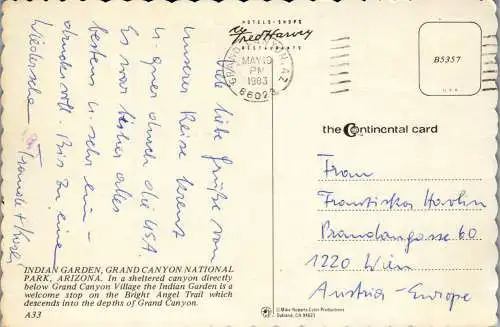 HOTELS · SHOPS
Fred Harvey
RESTAURANTS
MAY 19
PM
1983
B5357
U.S.A.
the Continental card
Viele liebe Grüße von
unserer Reise kreuz
u. quer durch die USA
Es war bisher alles
bestens u. sehr ein-
drucksvoll. Bis zu einem
Wiedersehen
Frau
Franziska
Brandangasse 60
1220 Wien
Austria - Europe
INDIAN GARDEN, GRAND CANYON NATIONAL
PARK, ARIZONA. In a sheltered canyon directly
below Grand Canyon Village the Indian Garden is a
welcome stop on the Bright Angel Trail which
descends into the depths of Grand Canyon.
A33
© Mike Roberts Color Productions
Oakland, CA 94623